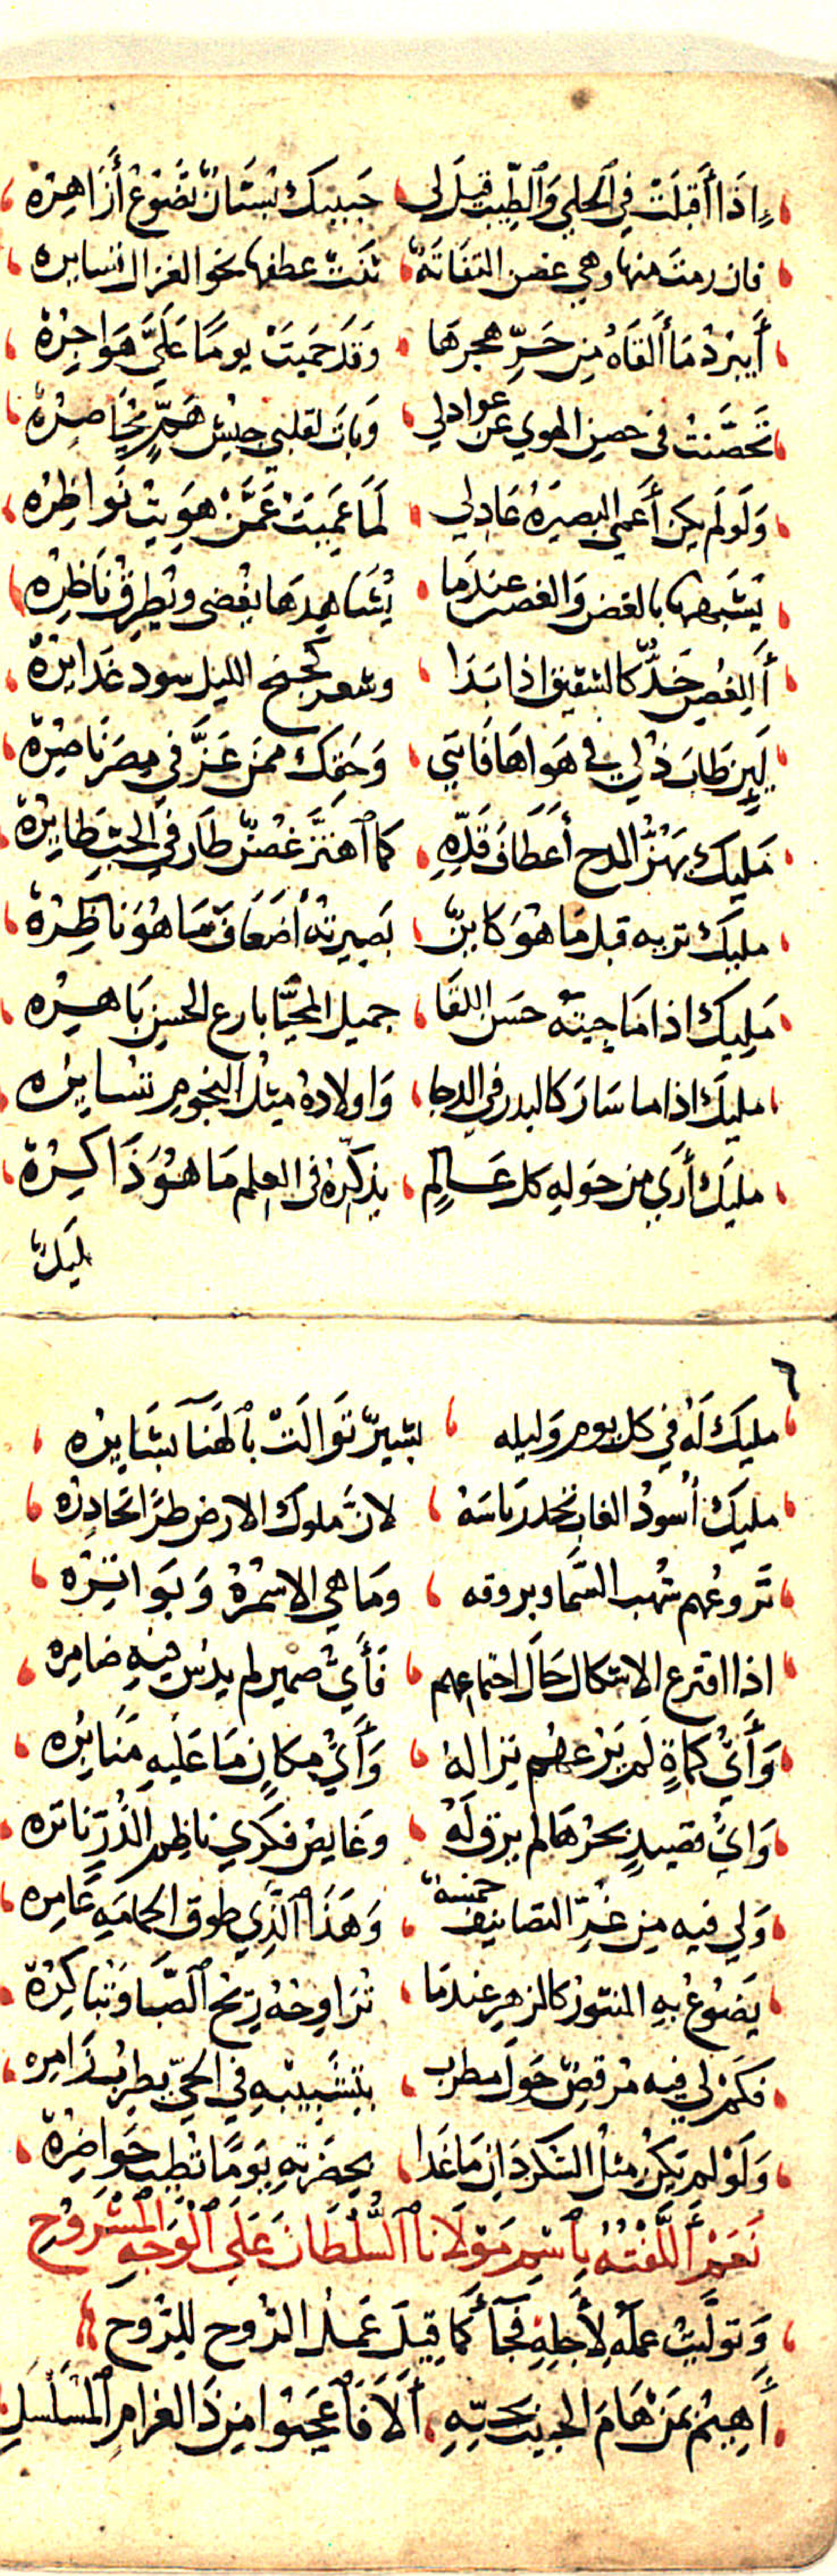 إِذَا أَقبَلَتْ في الحلي وَالطِّيب قيلَ لي حَبيبك بُستَانٌ تَضَوَّعُ أَزَاهِرُهْ
فان رمت منها وهي غصن التفاتةً ثنت عطفها نحو الغزال تسايره
أَيبْردُ مَا أَلقَاهُ مِن حَرِّ هجرهَا وَقَدَ حَمِيَتْ يومًا عَلَيَّ هَوَاجِرُهْ
تَحَصَّنتُ في حصن الهوي عن عواذلي وَبَاتَ لقلبي جيْش هَمٍّ يُحَاصِرُهْ
وَلَو لَم يكن أَعمي البصيرَةِ عَاذِلي لَمَا عَمِيَتْ عَمَّنْ هَوِيتُ نَواظِرُه
يُشَبهها بالغصن وَالغصن عندَما يُشَاهِدهَا يُغْضي ويُطرِقُ نَاظِرُه
أَلِلغُصنِ خَدٌّ كالشقيق اذا بَدَا وشعر كجنح الليل سود غَدَائرُهْ
لَئِن طَابَ ذُلي في هَواهَا فَانني وَحَقِك ممن عَزَّ في مِصرَ نَاصِرُهْ
مَليك يَهُزُّ المدح أَعطَافَ قَدِّهِ كما اهتَزَّ غصنٌ طار في الحبِّ طَايرُهْ
مليك تريه قبل مَا هُوَ كَائنٌ بَصِيرتُهُ أَضعَافَ مَا هُوَ نَاظِرُهْ
مَليك اذا مَا جيتَه حَسَن اللقَا جميل المحيَّا بارع الحسن بَاهِرُه
مليك اذا ما سَارَ كالبدر في الدجا وَاولادهُ مثل النجوم تُسايرُه
مليك أَرَي من حَولهِ كل عَالِمٍ يذكِّرُهُ في العِلم مَا هُوَ ذَاكِرُهْ
مَليك
٦
مليك لَهُ في كل يوم وَليله بَشيرٌ تَوَالَتْ بالهَنَا بَشَايرُه
مليك أُسودُ الغاب تحذر بَاسَهُ لانَّ ملوك الارض طرًّا تحَاذِرُه
تَروعُهم شُهب السَّما وبروقه ومَا هي الا سُمْرُهُ وَبَوَاتِرُه
اذا اقترع الاشكال حَالَ اجتماعهم فَأَيُّ ضمير لم يدُس فيهِ ضامره
وَأَيُّ كُماةٍ لَم يَرُعهُم نِزَاله وَأَيُّ مكانٍ مَا عَلَيهِ مَنَابِرُه
وَايُّ قصيدٍ بحرهَا لم يرق لَهُ وغَايصُ فكري ناظم الدُّرِّ ناثره
وَلي فيه مِن غُرِّ التصانيف خمسةٌ وَهَذَا الَّذي طوق الحمامَةِ عَامِره
يَضُوعُ بهِ المنثور كالزهرِ عندمَا تُرَاوِحُهُ رِيحُ الصَّبَا وَتُبَاكِرُهْ
فكم لي فيه مُرقِصٌ حَولَ مطرب بتشبيبهِ في الحيّ يطربُ زَامِره
وَلَو لم يَكن مثلُ السُّكردَانِ مَا غَدَا بحضرَتِهِ يَومًا تَطيب حَوَاضِرُهْ
نَعَمْ أَلَّفْتُهُ بِاسْمِ مَوْلَانَا السُّلْطَانَ عَلَي الْوَجهِ الْمَشْرُوحِ
وَتولَّيتُ عَمَلَهُ لأَجلِهِ فجَآءَ كمَا قيلَ عَمَلُ الرُّوح للرُّوح
أَهِيمُ بمَن هَامَ الحبيب بحبّهِ أَلاَ فَاعجَبُوا مِن ذَا الغرامِ المُسَلْسَلِ